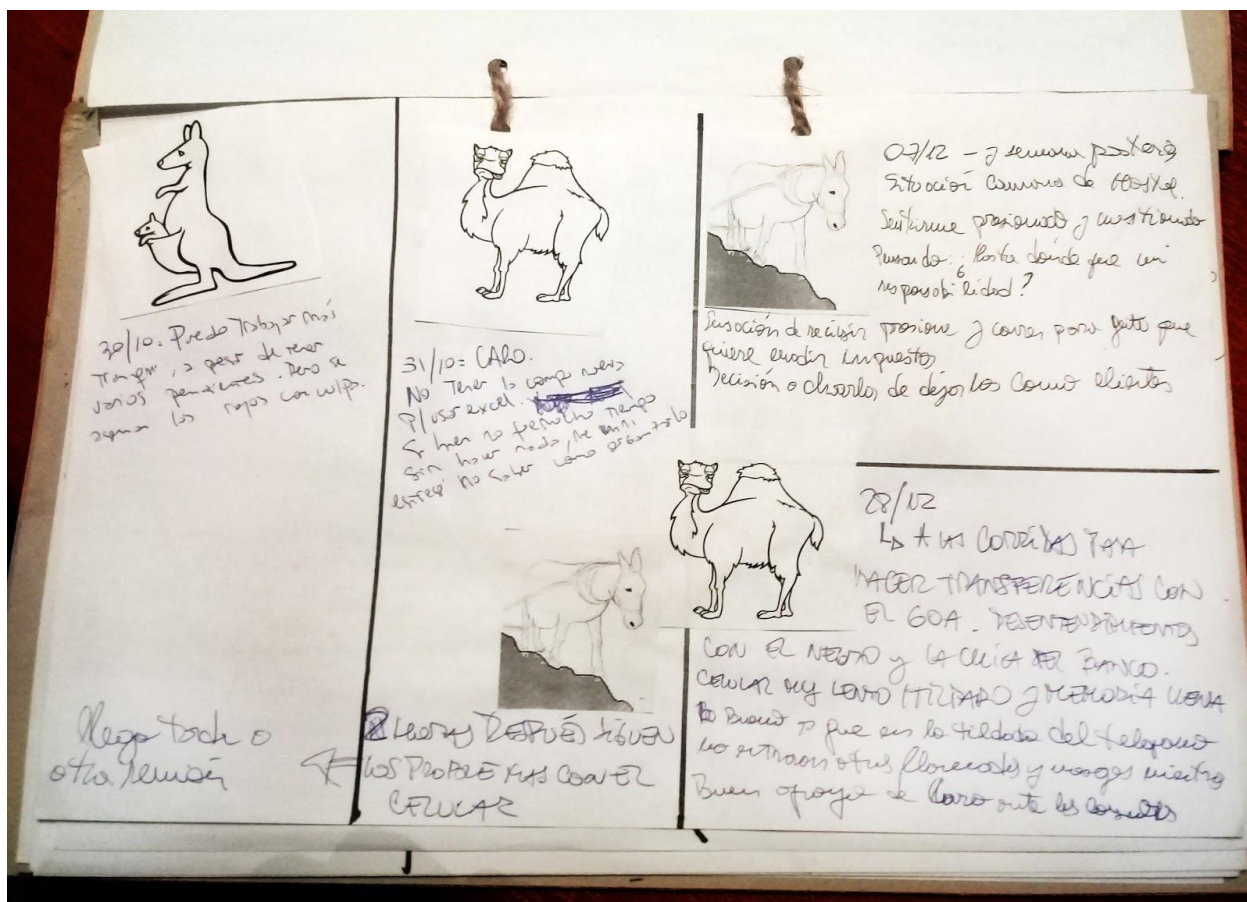 30/10: Puedo Trabajar más
tranqui, a pesar de tener
varios pendientes. Pero se
los rajes con culpa.
31/10: CARO.
No Tener la compu nueva
P/usar excel.
Si bien no fue mucho tiempo
sin hacer nada, me
estresé no saber cómo organizarlo
2 HORAS DESPUÉS SIGUEN
LOS PROBLEMAS CON EL
CELULAR
Llego tarde a
otra reunión
07/12 - y semana
Situación Camara de Hostel.
Sentirme presionado y cuestionado
Pensando: ¿Hasta dónde fue mi
responsabilidad?
Sensación de recibir presione y correr para gente que
quiere evadir impuestos
Decisión o charlas de dejarlos como clientes
28/12
↳ A LAS CORRIDAS PARA
HACER TRANSFERENCIAS CON
EL GOA. DESENTENDIMIENTOS
CON EL NEGRO y LA CHICA DEL BANCO.
CELULAR MUY LENTO TILDADO y MEMORIA LLENA
Lo Bueno es que en la tildada del telefono
no entraron otras llamadas y msages mientras
Buen apoyo de Caro ante las consultas